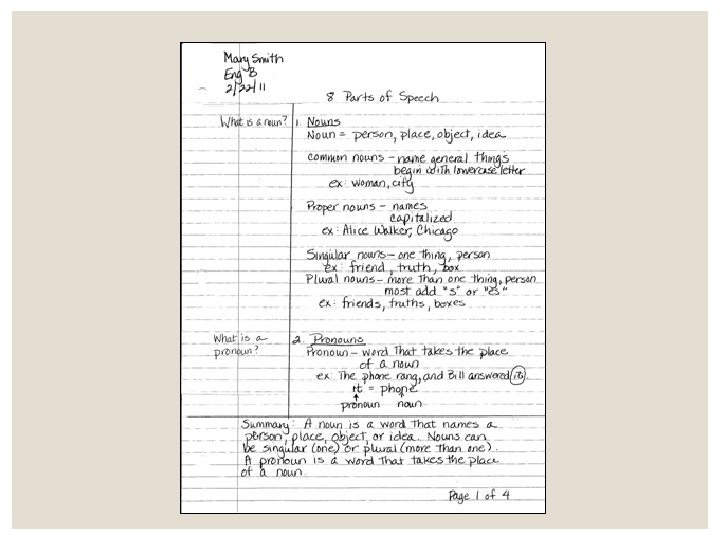 Mary Smith
Eng-B
2/22/11
8 Parts of Speech
What is a noun? 1. Nouns
Noun = person, place, object, idea
Common nouns - name general things
begin with lowercase letter
ex: woman, city
Proper nouns - names
capitalized
ex: Alice Walker, Chicago
Singular nouns - one thing, person
ex: friend, truth, box
Plural nouns - more than one thing, person
most add "s" or "es"
ex: friends, truths, boxes
What is a pronoun?
2. Pronouns
Pronoun - word that takes the place
of a noun
ex: The phone rang, and Bill answered it.
it = phone
pronoun noun
Summary: A noun is a word that names a
person, place, object, or idea. Nouns can
be singular (one) or plural (more than one).
A pronoun is a word that takes the place
of a noun.
Page 1 of 4